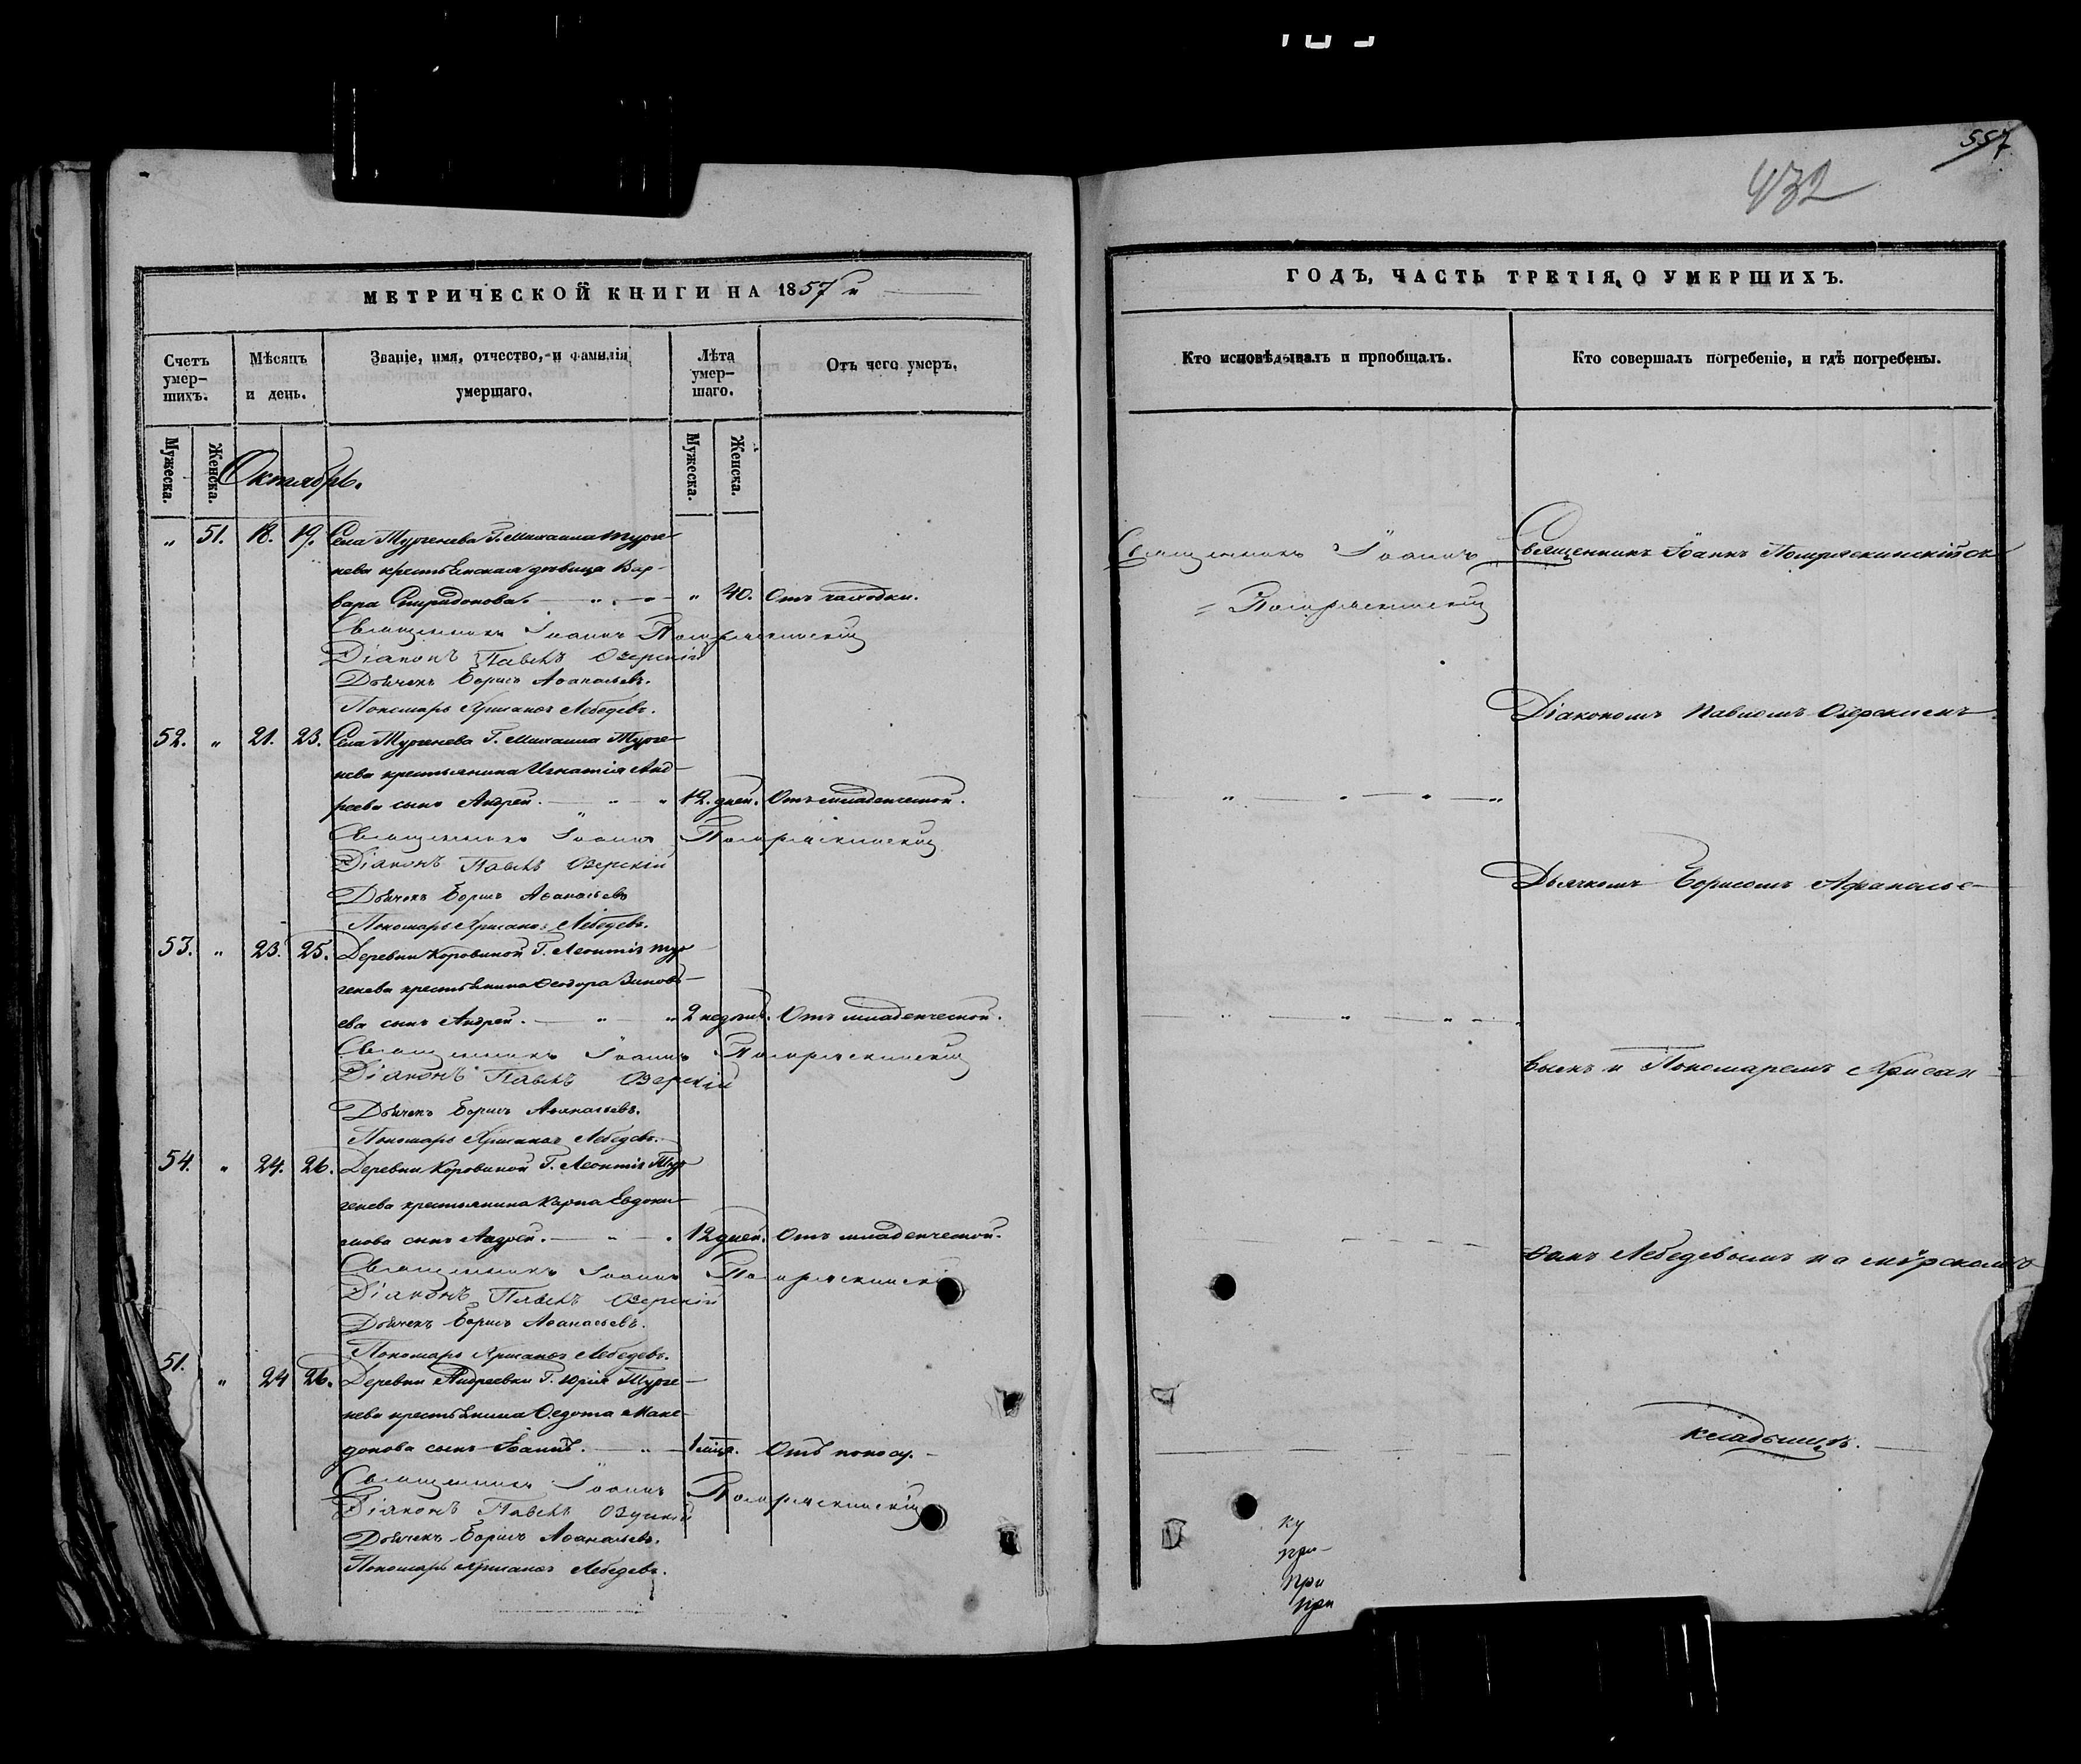 557
432
МЕТРИЧЕСКОЙ КНИГИ НА 1857 й
Счетъ умер-шихъ.
Мѣсяцъ и день.
Званіе, имя, отчество, и фамилія умершаго.
Лѣта умер-шаго.
Отъ чего умеръ.
Мужеска.
Женска.
Мужеска.
Женска.
Октябрь.
„ 51. 18. 19. Села Тургенева Г. Михаила Турге-
нева крестьянская дѣвица Вар-
вара Спиридонова. „ „ 40. Отъ чахотки.
Священникъ Іоаннъ Помряскинскій
Діаконъ Павелъ Озерскій
Дьячекъ Борисъ Аѳанасьевъ.
Пономарь Хрисанѳъ Лебедевъ.
52. „ 21. 23. Села Тургенева Г. Михаила Турге-
нева крестьянина Игнатія Анд-
реева сынъ Андрей. „ „ 12. дней. Отъ младенческой.
Священникъ Іоаннъ Помряскинскій
Діаконъ Павелъ Озерскій
Дьячекъ Борисъ Аѳанасьевъ
Пономарь Хрисанѳъ Лебедевъ.
53. „ 23. 25. Деревни Коровиной Г. Леонтія Тур
генева крестьянина Ѳеодора Зиновь-
ева сынъ Андрей. „ „ 2 недѣль. Отъ младенческой.
Священникъ Іоаннъ Помряскинскій
Діаконъ Павелъ Озерскій
Дьячекъ Борисъ Аѳанасьевъ.
Пономарь Хрисанѳъ Лебедевъ.
54. „ 24. 26. Деревни Коровиной Г. Леонтія Тур
генева крестьянина Карпа Евдоки-
мова сынъ Андрей. „ „ 12 дней. Отъ младенческой.
Священникъ Іоаннъ Помряскинскій
Діаконъ Павелъ Озерскій
Дьячекъ Борисъ Аѳанасьевъ.
Пономарь Хрисанѳъ Лебедевъ.
51. „ 24 26. Деревни Андреевки Г. Юрія Турге-
нева крестьянина Ѳедота Маке-
донова сынъ Іоаннъ. „ 1 мца. Отъ поносу.
Священникъ Іоаннъ Помряскинскій
Діаконъ Павелъ Озерскій
Дьячекъ Борисъ Аѳанасьевъ.
Пономарь Хрисанѳъ Лебедевъ.
ГОДЪ, ЧАСТЬ ТРЕТІЯ, О УМЕРШИХЪ.
Кто исповѣдывалъ и пріобщалъ.
Кто совершалъ погребеніе, и гдѣ погребены.
Священникъ Іоаннъ
Помряскинскій
Священникъ Іоаннъ Помряскинскій съ
Діакономъ Павломъ Озерскимъ
Дьячкомъ Борисомъ Афанасье-
вымъ и Пономаремъ Хрисан
ѳомъ Лебедевымъ на мірскомъ
кладбищѣ.
ку
при-
при
при